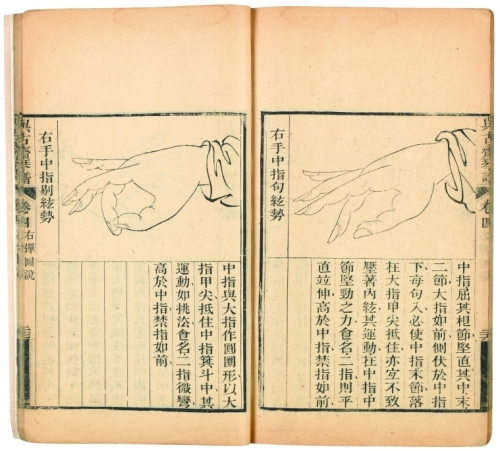 與古齋琴譜
卷四
右手中指句絃勢
中指屈其根節堅直其中末
二節大指如前側伏於中指
下每句入必使中指末節落
在大指甲尖抵住亦宜不致
壓著內絃其運動在中指中
節堅勁之力食名二指則平
直竝伸高於中指禁指如前
右手中指剔絃勢
中指與大指作圓圈形以大
指甲尖抵住中指箕斗中其
運動如挑㳒食名二指微彎
高於中指禁指如前
與古齋琴譜
卷四
右彈圖說